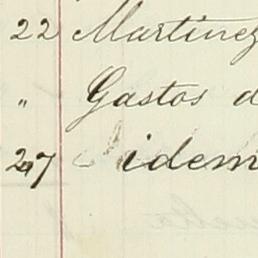 22 Martinez
" Gastos d
27 idem